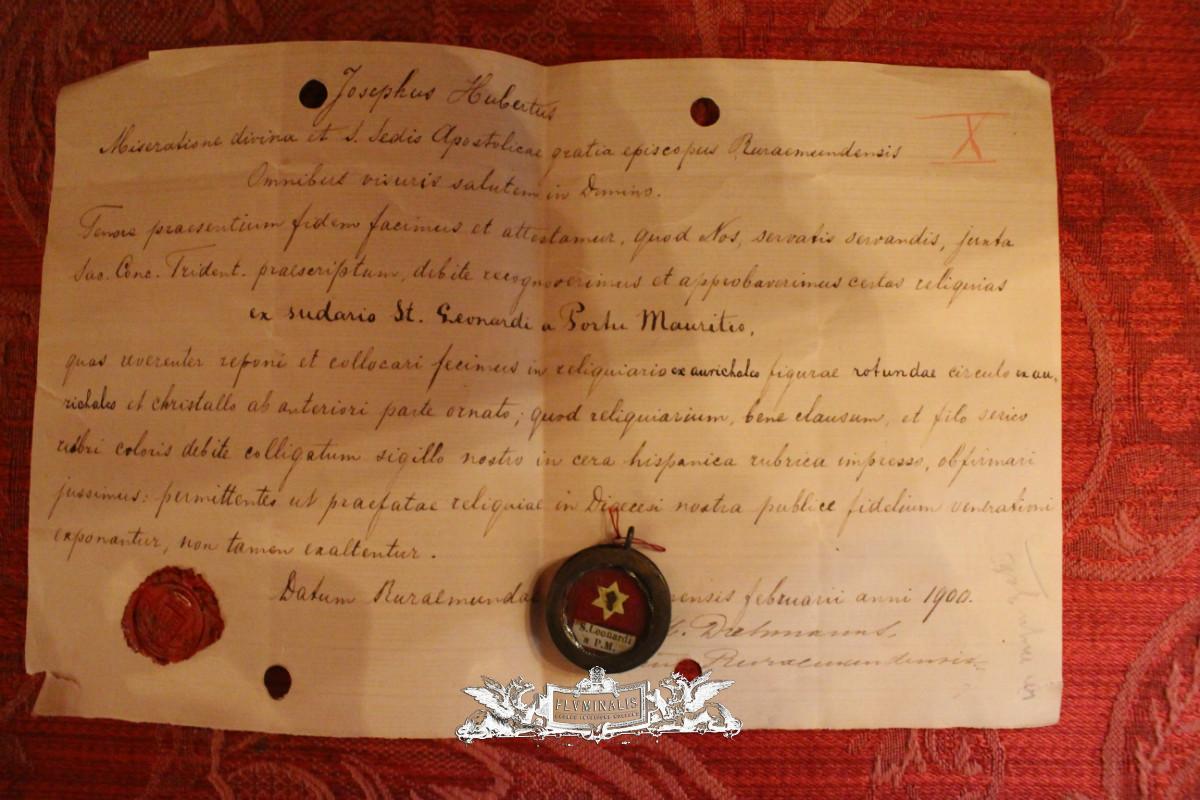 Josephus Hubertus
X
Miseratione divina et S. Sedis Apostolicae gratia episcopus Ruraemundensis
Omnibus visuris salutem in Domino.
Tenore praesentium fidem facimus et attestamur, quod Nos, servatis servandis, juxta
Sac. Conc. Trident. praescriptum, debite recognoverimus et approbaverimus certas reliquias
ex sudario St. Leonardi a Portu Mauritio,
quas reverenter reponi et collocari fecimus in reliquiario ex aurichalco figurae rotundae circulo ex au,
richalco et christallo ab anteriori parte ornato; quod reliquiarium, bene clausum, et filo serico
rubri coloris debite colligatum sigillo nostro in cera hispanica rubrica impresso, obfirmari
jussimus: permittentes ut praefatae reliquiae in Dioecesi nostra publice fidelium venerationi
exponantur, non tamen exaltentur.
Datum Ruraemundae ensis februarii anni 1900.
Drehmanns,
Ruraemundensis
S. Leonardi
a P. M.
FLVMINALIS